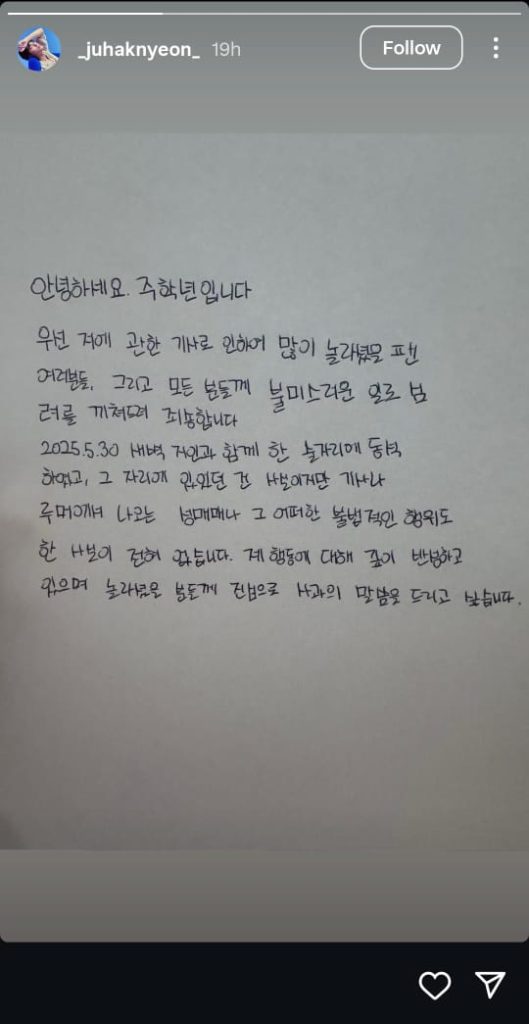 _juhaknyeon_ 19h Follow
안녕하세요. 주학년입니다
우선 저에 관한 기사로 인하여 많이 놀라셨을 팬
여러분들, 그리고 모든 분들께 불미스러운 일로 심
려를 끼쳐드려 죄송합니다
2025.5.30 새벽 지인과 함께 한 술자리에 동석
하였고, 그 자리에 있었던 건 사실이지만 기사나
루머에서 나오는 성매매나 그 어떠한 불법적인 행위도
한 사실이 전혀 없습니다. 제 행동에 대해 깊이 반성하고
있으며 놀라셨을 분들께 진심으로 사과의 말씀을 드리고 싶습니다.